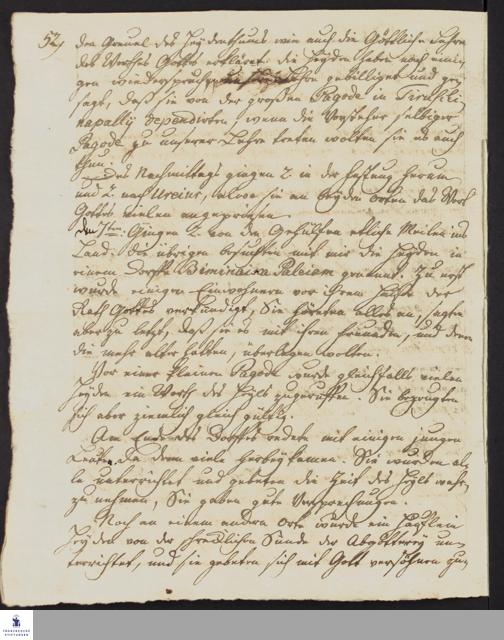 52,
den Greuel des Heydenthums wie auch die Göttliche Lehre
des Wortes Gottes erkläret. die Heyden haben nach eini-
gen wiedersprüchen Lehre gebilliget und ge-
sagt, daß sie von der großen Pagode in Tirutschi-
napally dependirten, wenn die Vorsteher selbiger
Pagode zu unserer Lehre treten wolten sie es auch
thun.
Des Nachmittags gingen 2. in der Festung herum
und 2. nach Ureiur, alwo sie an beyden Orten das Wort
Gottes vielen angepriesen.
Den 7ten: Gingen 2. von den Gehülfen etliche Meilen ins
Land. die übrigen besuchten mit mir die Heyden in
einem Dorffe Biminaiken Paleiam genannt. Zu erst
wurde einigen Einwohnern vor ihrem Hause der
Rath Gottes verkündiget, Sie höreten alles an, sagten
aber zu letzt, daß sie es mit ihren Freunden, und denen
die mehr alter hatten, überlegen wolten.
Vor einer kleinen Pagode wurde gleichfals vielen
Heyden ein Wort des Heyls zugeruffen. Sie bezeugten
sich aber ziemlich gleichgültig.
Am Ende des Dorffes redete mit einigen jungen
Leuten, zu denen viele herbey kamen. Sie wurden al-
le unterrichtet und gebeten die Zeit des Heyls wahr
zu nehmen, Sie gaben gute Versprechungen.
Noch an einem andern Orte wurde ein Häuflein
Heyden von der schrecklichen Sünde der Abgötterey un-
terrichtet, und sie gebeten sich mit Gott versöhnen zu
FRANCKESCHE
STIFTUNGEN